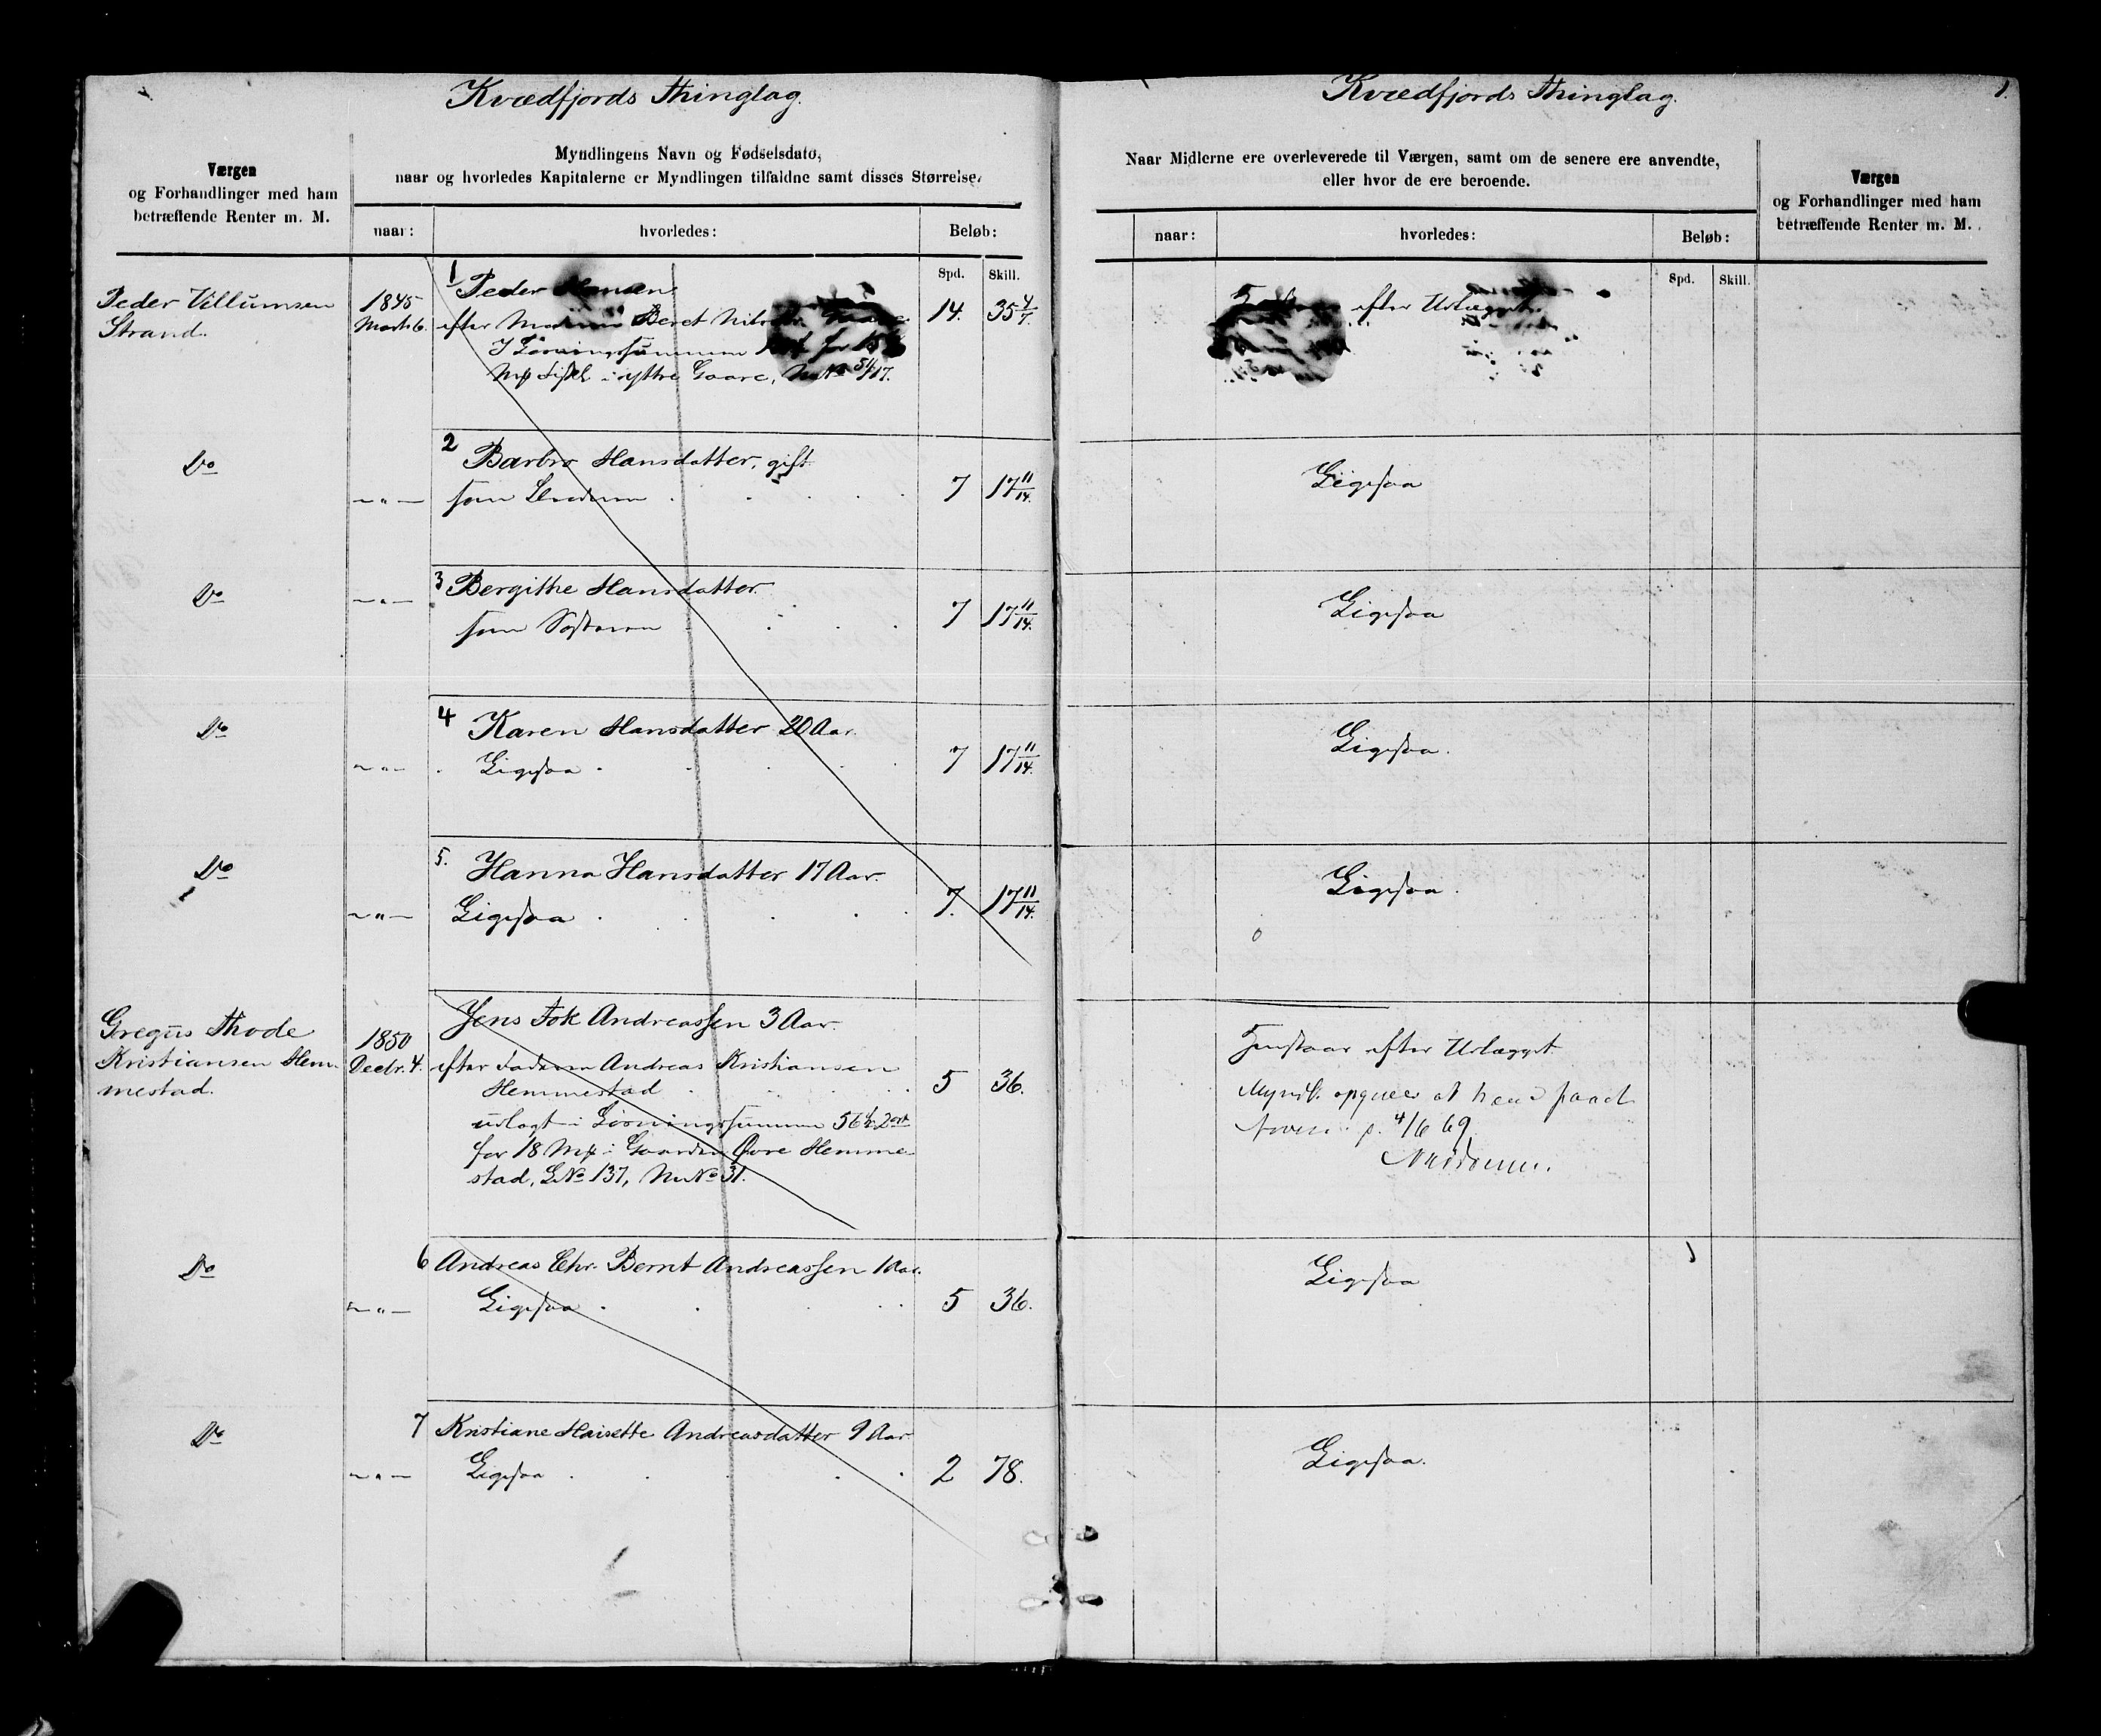 Kvædfjords Thinglag.
Værgen
og Forhandlinger med ham
betræffende Renter m. M.
Myndlingens Navn og Fødselsdato,
naar og hvorledes Kapitalerne er Myndlingen tilfaldne samt disses Størrelse.
naar:
hvorledes:
Beløb:
Spd. Skill.
Peder Villumsen
Strand.
1845
Marts 6.
1 Peder Hansen
efter Beret 14. 35 4/7.
Løsningssummen for
i ytre Gaare, M No 54/17.
Do
2 Barbro Hansdatter, gift
„ som 7 17 11/14.
Do
„ 3 Bergithe Hansdatter
som Søsteren 7 17 11/14.
Do
4 Karen Hansdatter 20 Aar.
„ Ligesaa 7 17 11/14.
Do
5. Hanna Hansdatter 17 Aar.
„ Ligesaa 7. 17 11/14.
Gregus Thode
Kristiansen Hem-
mestad.
1850
Decbr. 4.
Jens Fok Andreassen 3 Aar.
efter Faderen Andreas Kristiansen
Hemmestad 5 36.
udlagt i Løsningssummen 56
for 18 Mk i Gaarden Øvre Hemme
stad, LNo 137, MNo 31.
Do
6 Andreas Chr. Bernt Andreassen 1 Aar.
„ Ligesaa 5 36.
Do
7 Kristiane Andreasdatter 9 Aar
„ Ligesaa 2 78.
Kvædfjords Thinglag.
1.
Naar Midlerne ere overleverede til Værgen, samt om de senere ere anvendte,
eller hvor de ere beroende.
Værgen
og Forhandlinger med ham
betræffende Renter m. M.
naar:
hvorledes:
Beløb:
Spd. Skill.
efter Udlægget
Ligesaa
Ligesaa
Ligesaa.
Ligesaa.
Henstaar efter Udlægget
4/6 69
Ligesaa
Ligesaa.